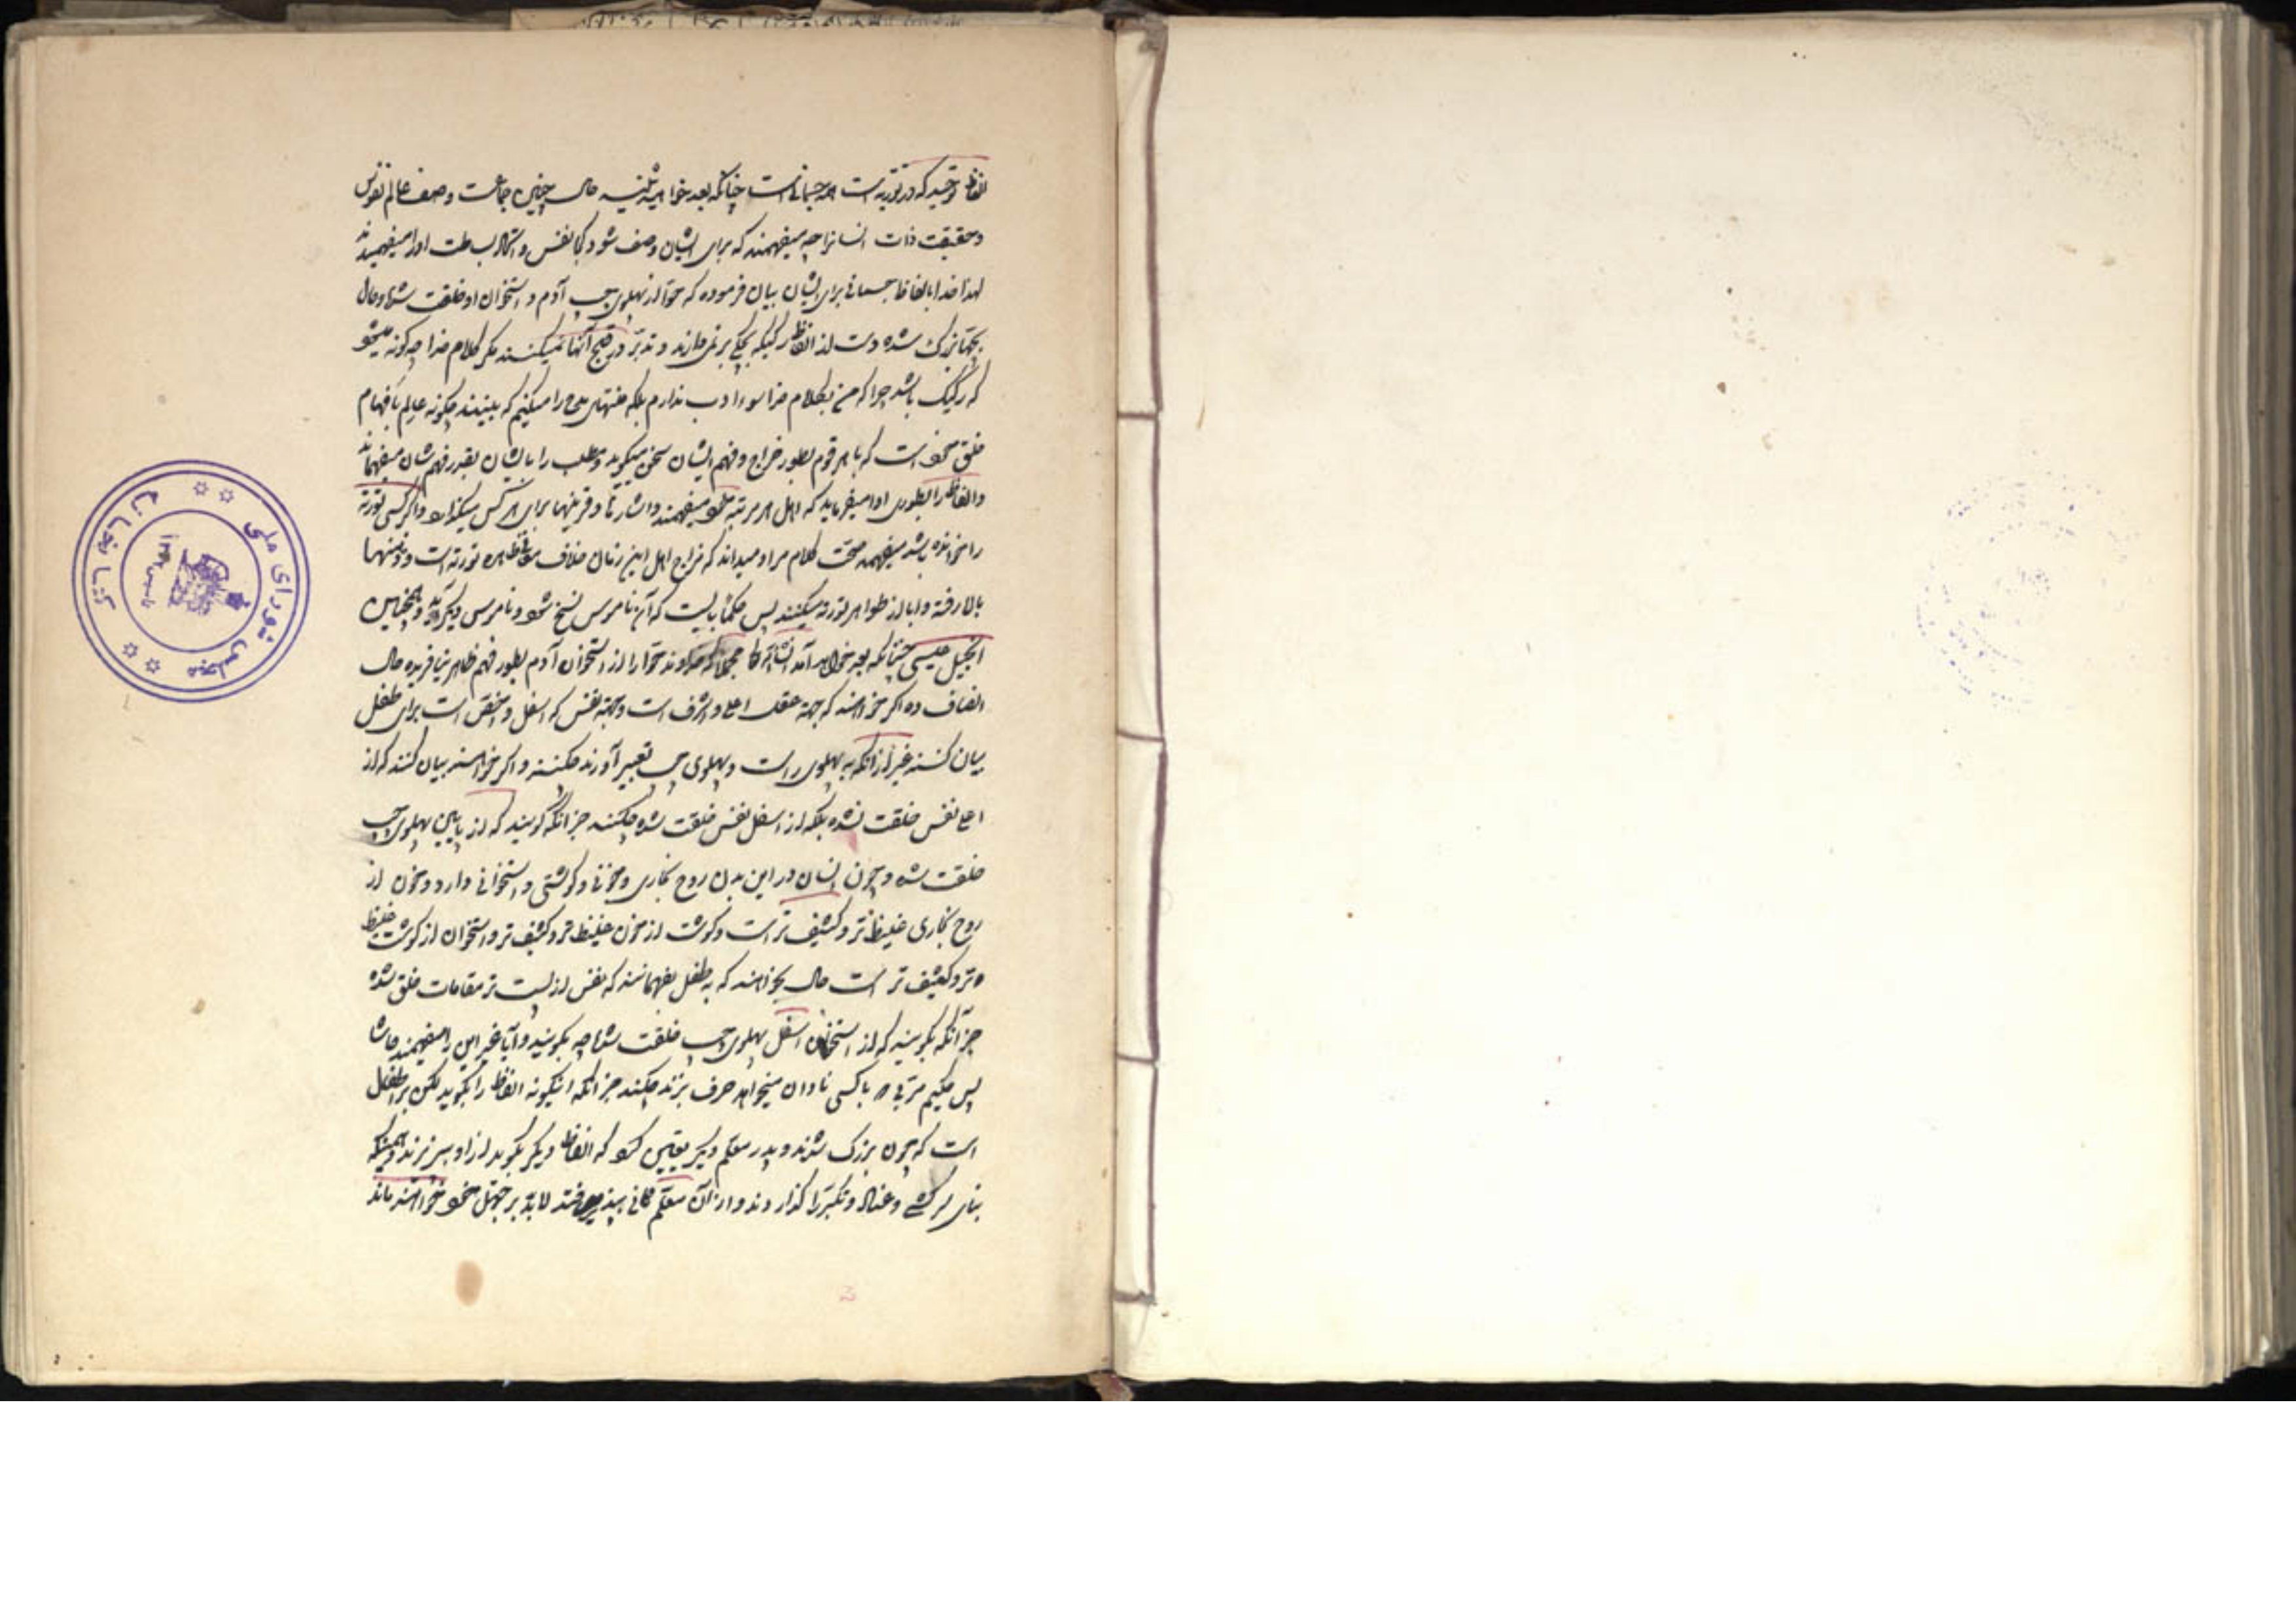 الفاظ توحید که در توریة است همه جسمانی است چنانکه بعد خواهید شنید حال چنین جماعت وصف عالم نفوس
و حقیقت ذات انسانرا چه میفهمند که برای ایشان وصف شود کجا نفس و بساطت او را میفهمیدند
لهذا خدا بالفاظ جسمانی برای ایشان بیان فرموده که حوا از پهلوی چپ آدم و استخوان او خلقت شده و حال
بزرگ شده دست از الفاظ رکیکه بچگی بر نمیدارند و تدبر در قبح آنها نمیکنند مگر کلام خدا چه گونه میشود
که رکیک باشد چرا که من بکلام خدا سوء ادب ندارم بلکه منتهای مدح را میکنم که ببینند چگونه عالم بافهام
خلق خود است که با هر قوم بطور مزاج و فهم ایشان سخن میگوید و مطلب را بایشان بقدر فهمشان میفهماند
و الفاظ را بطوری ادا میفرماید که اهل هر مرتبه میفهمند و اشارتها و قرینها برای هر کس میگذارد و اگر کسی توریة
را خوانده باشد میفهمد صحت کلام مرا و میداند که مزاج اهل این زمان خلاف ظاهره توریة است و ذهنها
بالا رفته و ابا از ظواهر توریة میکنند پس حکما بایست که آن ناموس نسخ شود و ناموس دیگر آید و همچنین
انجیل عیسی چنانکه بعد خواهد آمد انشاءالله مجملا که خداوند حوا را از استخوان آدم بطور فهم ظاهر نیافریده حال
انصاف ده اگر خواهند که جهة عقل اعلی و اشرف است و جهة نفس که اسفل و اخس است برای طفل
بیان کنند غیر از آنکه به پهلوی راست و پهلوی چپ تعبیر آورند چکنند و اگر خواهند بیان کنند که از
اعلی نفس خلقت نشده بلکه از اسفل نفس خلقت شده چکنند جز آنکه گویند که از پایین پهلوی چپ
خلقت شده و چون انسان در این بدن روح بخاری و خونی و گوشتی و استخوانی دارد و خون از
روح بخاری غلیظ تر و کثیف تر است و گوشت از خون غلیظ تر و کثیف تر و استخوان از گوشت غلیظ
تر و کثیف تر است حال بخواهند که به طفل بفهمانند که نفس از پست تر مقامات خلق شده
جز آنکه بگویند که از استخوان اسفل پهلوی چپ خلقت شده چه بگویند و آیا غیر این را میفهمند حاشا
پس حکیم مربی با کسی نادان میخواهد حرف بزند چکند جز آنکه اینگونه الفاظ را بگوید لکن بر طفل
است که چون بزرگ شدند و پدر معلم دیگر تعیین کند که الفاظ دیگر بگوید از او بپذیرند و همینکه
بنای سرکشی و عناد و تکبر را گذاردند و از آن معلم ثانی نپذیرفتند لابد بر جهل خود خواهند ماند
کتابخانه
مجلس شورای ملی